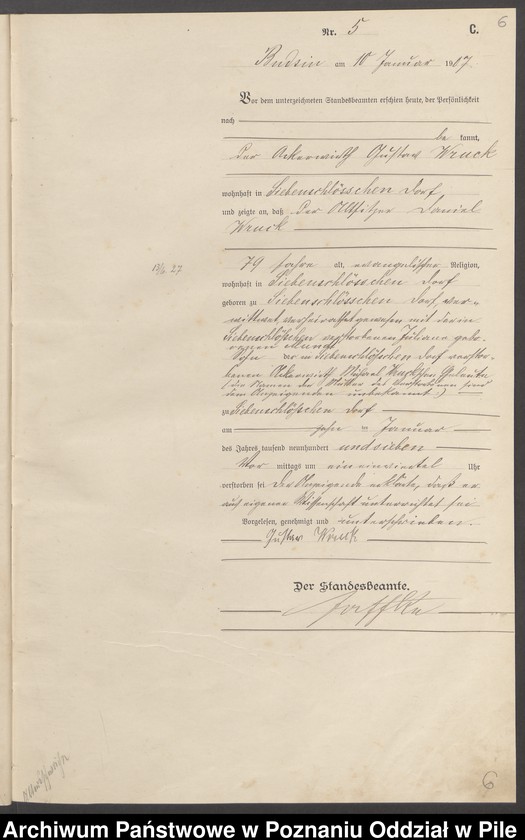 6
Nr. 5 C.
Budsin am 10 Januar 1907.
Vor dem unterzeichneten Standesbeamten erschien heute, der Persönlichkeit
nach
be kannt,
der Ackerwirth Gustav Wruck
wohnhaft in Siebenschlösschen Dorf
und zeigte an, daß der Altsitzer Daniel
Wruck
79 Jahre alt, evangelischer Religion,
wohnhaft in Siebenschlösschen Dorf
geboren zu Siebenschlösschen Dorf, ver-
wittwet, verheirathet gewesen mit der in
Siebenschlößchen verstorbenen Juliana gebo-
renen
Sohn der in Siebenschlößchen Dorf verstor-
benen Ackerwirth Michael Wruckschen Eheleute
(die Namen der Mutter des Verstorbenen sind
dem Anzeigenden unbekannt.)
zu Siebenschlößchen Dorf
am zehn ten Januar
des Jahres tausend neunhundert und sieben
Vor mittags um ein einviertel Uhr
verstorben sei Der Anzeigende erklärte, daß er
aus eigener Wissenschaft unterrichtet sei
Vorgelesen, genehmigt und unterschrieben.
Gustav Wruck
Der Standesbeamte.
6
Archiwum Państwowe w Poznaniu Oddział w Pile